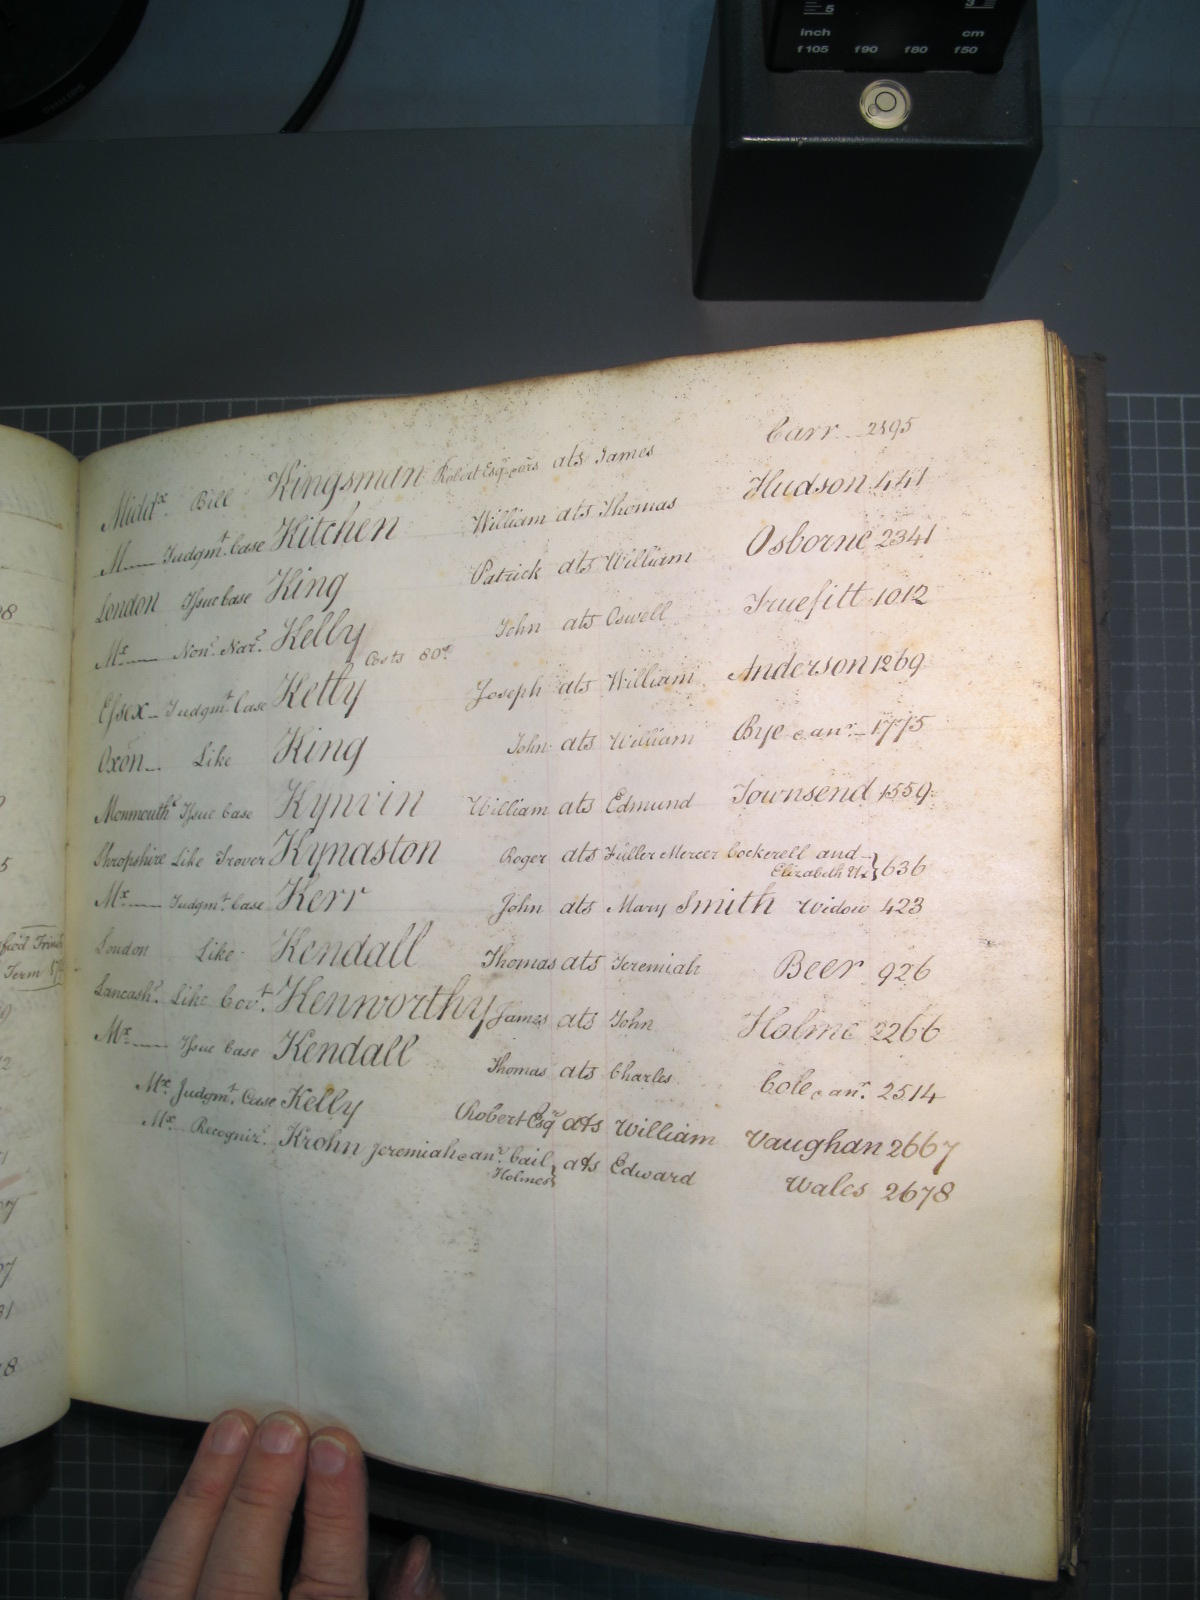 inch cm
f105 f90 f80 f50
Midd.x Bill Kingsman Robert Esq.r & ors ats James Carr 2195
M Judgm.t Case Kitchen William ats Thomas Hudson 441
London Issue Case King Patrick ats William Osborne 2341
M.x Non. Nar.r Kelly John ats Oswell Truefitt 1012
Costs 80
Essex Judgm.t Case Kelly Joseph ats William Anderson 1269
Oxon Like King John ats William Bye & an.r 1775
Monmouth Issue Case Kynvin William ats Edmund Townsend 1559
Shropshire Like Trover Kynaston Roger ats Fuller Mercer Cockerell and
Elizabeth 636
M.x Judgm.t Case Kerr John ats Mary Smith Widow 423
London Like Kendall Thomas ats Jeremiah Beer 926
Lancash.r Like Cov.t Kenworthy James ats John Holme 2266
M.x Issue Case Kendall Thomas ats Charles Cole & an.r 2514
M.x Judgm.t Case Kelly Robert Esq.r ats William Vaughan 2667
M.x Recogniz.e Krohn Jeremiah & an.r bail ats Edward Wales 2678
Holmes